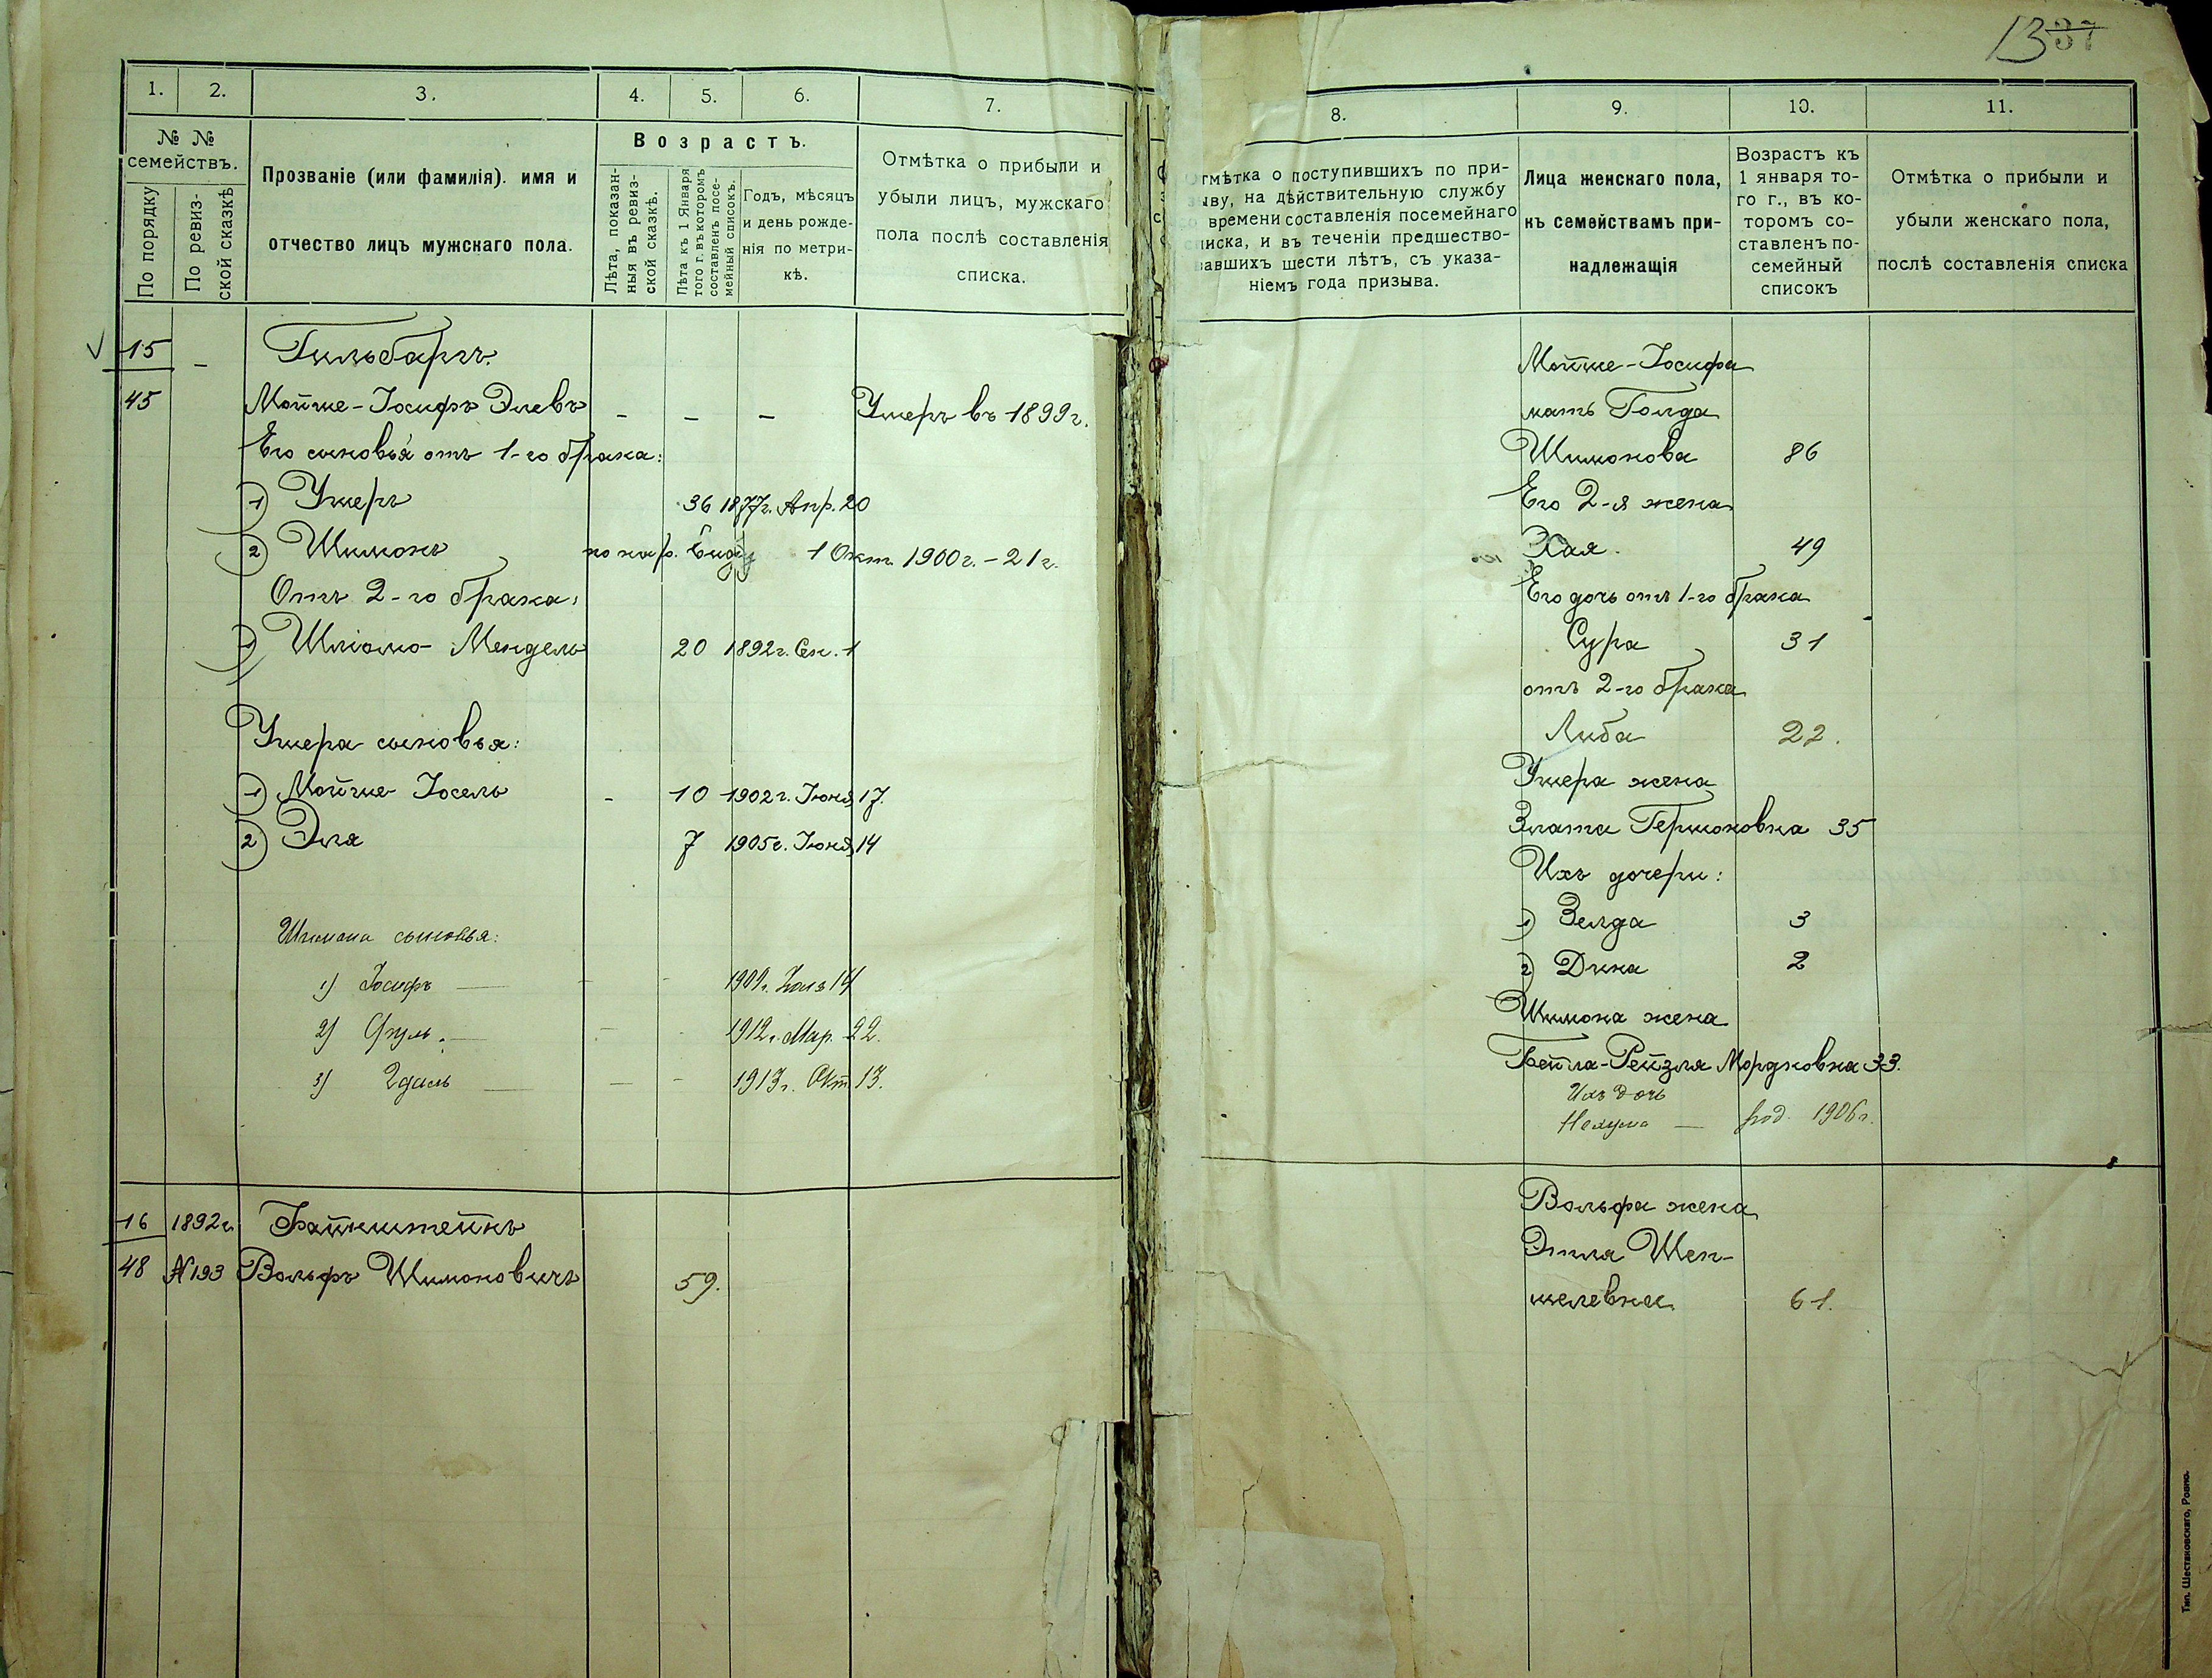 13 37
1. 2. 3. 4. 5. 6. 7.
№ №
семействъ.
По порядку
По ревиз-
ской сказкѣ
Прозваніе (или фамилія). имя и
отчество лицъ мужскаго пола.
Возрастъ.
Лѣта, показан-
ныя въ ревиз-
ской сказкѣ.
Лѣта къ 1 Января
того г. въ которомъ
составленъ посе-
мейный списокъ.
Годъ, мѣсяцъ
и день рожде-
нія по метри-
кѣ.
Отмѣтка о прибыли и
убыли лицъ, мужскаго
пола послѣ составленія
списка.
15 - Гильбаргъ.
45 Мойше-Іосифъ Элевъ - - - Умеръ въ 1899 г.
Его сыновья отъ 1-го брака:
1) Ушеръ 36 1877 г. Апр. 20
2) Шимонъ по нар. виду 1 Окт. 1900 г. - 21 г.
Отъ 2-го брака:
1) Шліомо-Мендель 20 1892 г. Сен. 1
Ушера сыновья:
1) Мойше-Іосель - 10 1902 г. Іюня 17.
2) Эля 7 1905 г. Іюня 14
Шимона сыновья:
1) Іосифъ — - - 1909 г. 14
2) — - - 1912 г. Мар. 22.
3) — - - 1913 г. Окт. 13.
16 1892 г. Файнштейнъ
48 №193 Вольфъ Шимоновичъ 59.
8. 9. 10. 11.
Отмѣтка о поступившихъ по при-
зыву, на дѣйствительную службу
со времени составленія посемейнаго
списка, и въ теченіи предшество-
вавшихъ шести лѣтъ, съ указа-
ніемъ года призыва.
Лица женскаго пола,
къ семействамъ при-
надлежащія
Возрастъ къ
1 января то-
го г., въ ко-
торомъ со-
ставленъ по-
семейный
списокъ
Отмѣтка о прибыли и
убыли женскаго пола,
послѣ составленія списка
Мойше-Іосифа
мать Голда
Шимонова 86
Его 2-я жена
Хая. 49
Его дочь отъ 1-го брака
Сура 31
отъ 2-го брака
Либа 22.
Ушера жена
Злата Гершоновна 35
Ихъ дочери:
1) Зелда 3
2) Дина 2
Шимона жена
Бейла-Рейзля Мордковна 33.
Ихъ дочь
Нехума — род. 1906 г.
Вольфа жена
Этля Шеп-
шелевна 61.
Тип. Шестаковскаго, Ровно.